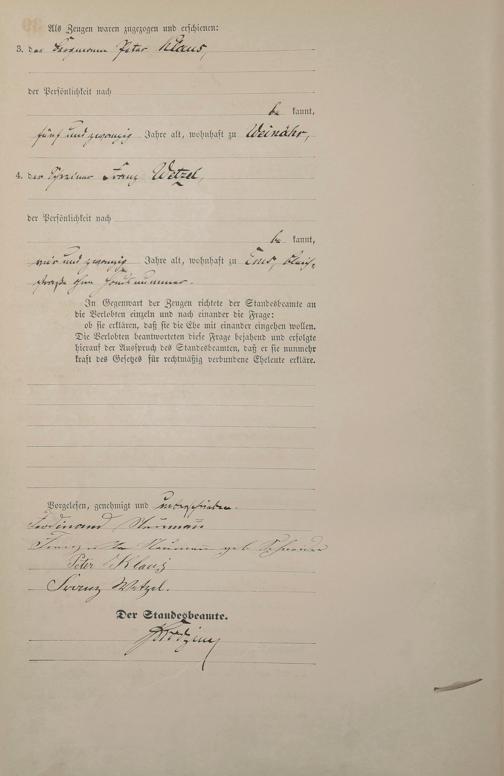 Als Zeugen waren zugezogen und erschienen:
3. der Bergmann Peter Klaus,
der Persönlichkeit nach
be kannt,
fünf und zwanzig Jahre alt, wohnhaft zu Weinähr,
4. der Schreiner Franz Wetzel,
der Persönlichkeit nach
be kannt,
vier und zwanzig Jahre alt, wohnhaft zu Ems,
straße ohne Hausnummer.
In Gegenwart der Zeugen richtete der Standesbeamte an
die Verlobten einzeln und nach einander die Frage:
ob sie erklären, daß sie die Ehe mit einander eingehen wollen.
Die Verlobten beantworteten diese Frage bejahend und erfolgte
hierauf der Ausspruch des Standesbeamten, daß er sie nunmehr
kraft des Gesetzes für rechtmäßig verbundene Eheleute erkläre.
Vorgelesen, genehmigt und unterschrieben.
Ferdinand
geb
Peter Klaus
Franz Wetzel.
Der Standesbeamte.